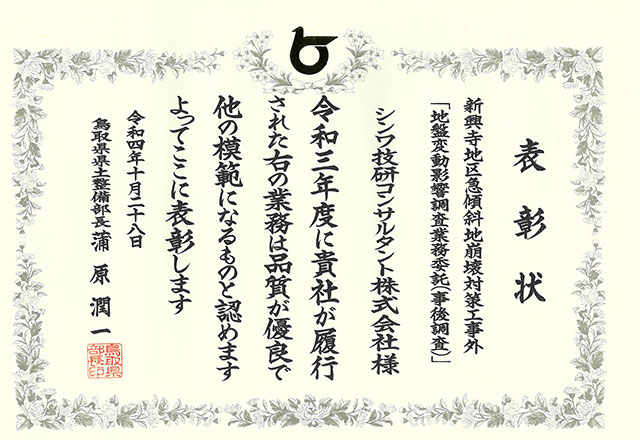 表彰状
新興寺地区急傾斜地崩壊対策工事外
「地盤変動影響調査業務委託(事後調査)」
シンワ技研コンサルタント株式会社様
令和三年度に貴社が履行
された右の業務は品質が優良で
他の模範になるものと認めます
よってここに表彰します
令和四年十月二十八日
鳥取県県土整備部長 蒲原潤一
鳥取県
部長印